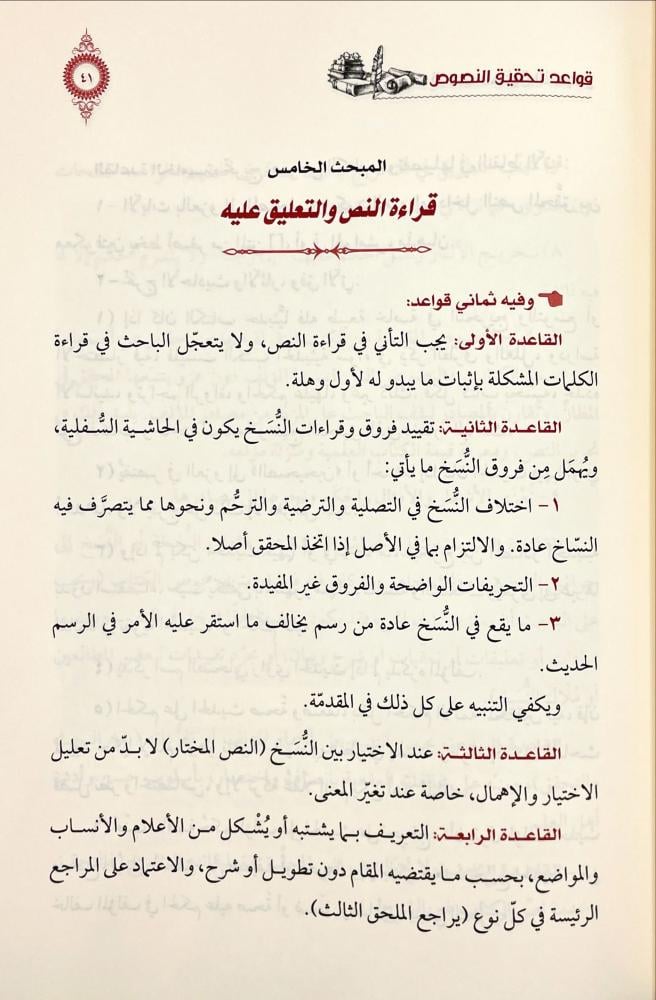 قواعد تحقيق النصوص
٤١
المبحث الخامس
قراءة النص والتعليق عليه
وفيه ثماني قواعد:
القاعدة الأولى: يجب التأني في قراءة النص، ولا يتعجّل الباحث في قراءة
الكلمات المشكلة بإثبات ما يبدو له لأول وهلة.
القاعدة الثانية: تقييد فروق وقراءات النُّسَخ يكون في الحاشية السُّفلية،
ويُهمَل مِن فروق النُّسَخ ما يأتي:
١- اختلاف النُّسَخ في التصلية والترضية والترحُّم ونحوها مما يتصرَّف فيه
النسّاخ عادة. والالتزام بما في الأصل إذا اتخذ المحقق أصلا.
٢- التحريفات الواضحة والفروق غير المفيدة.
٣- ما يقع في النُّسَخ عادة من رسم يخالف ما استقر عليه الأمر في الرسم
الحديث.
ويكفي التنبيه على كل ذلك في المقدمّة.
القاعدة الثالثة: عند الاختيار بين النُّسَخ (النص المختار) لا بدّ من تعليل
الاختيار والإهمال، خاصة عند تغيّر المعنى.
القاعدة الرابعة: التعريف بما يشتبه أو يُشْكل من الأعلام والأنساب
والمواضع، بحسب ما يقتضيه المقام دون تطويل أو شرح، والاعتماد على المراجع
الرئيسة في كلّ نوع (يراجع الملحق الثالث).